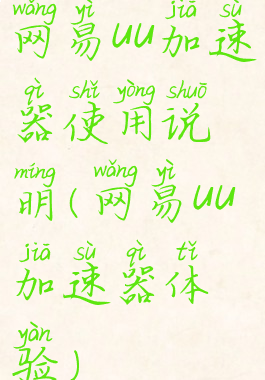 wǎng yì jiā sù
网易uu加速
qì shǐ yòng shuō
器使用说
míng wǎng yì
明(网易uu
jiā sù qì tǐ
加速器体
yàn
验)